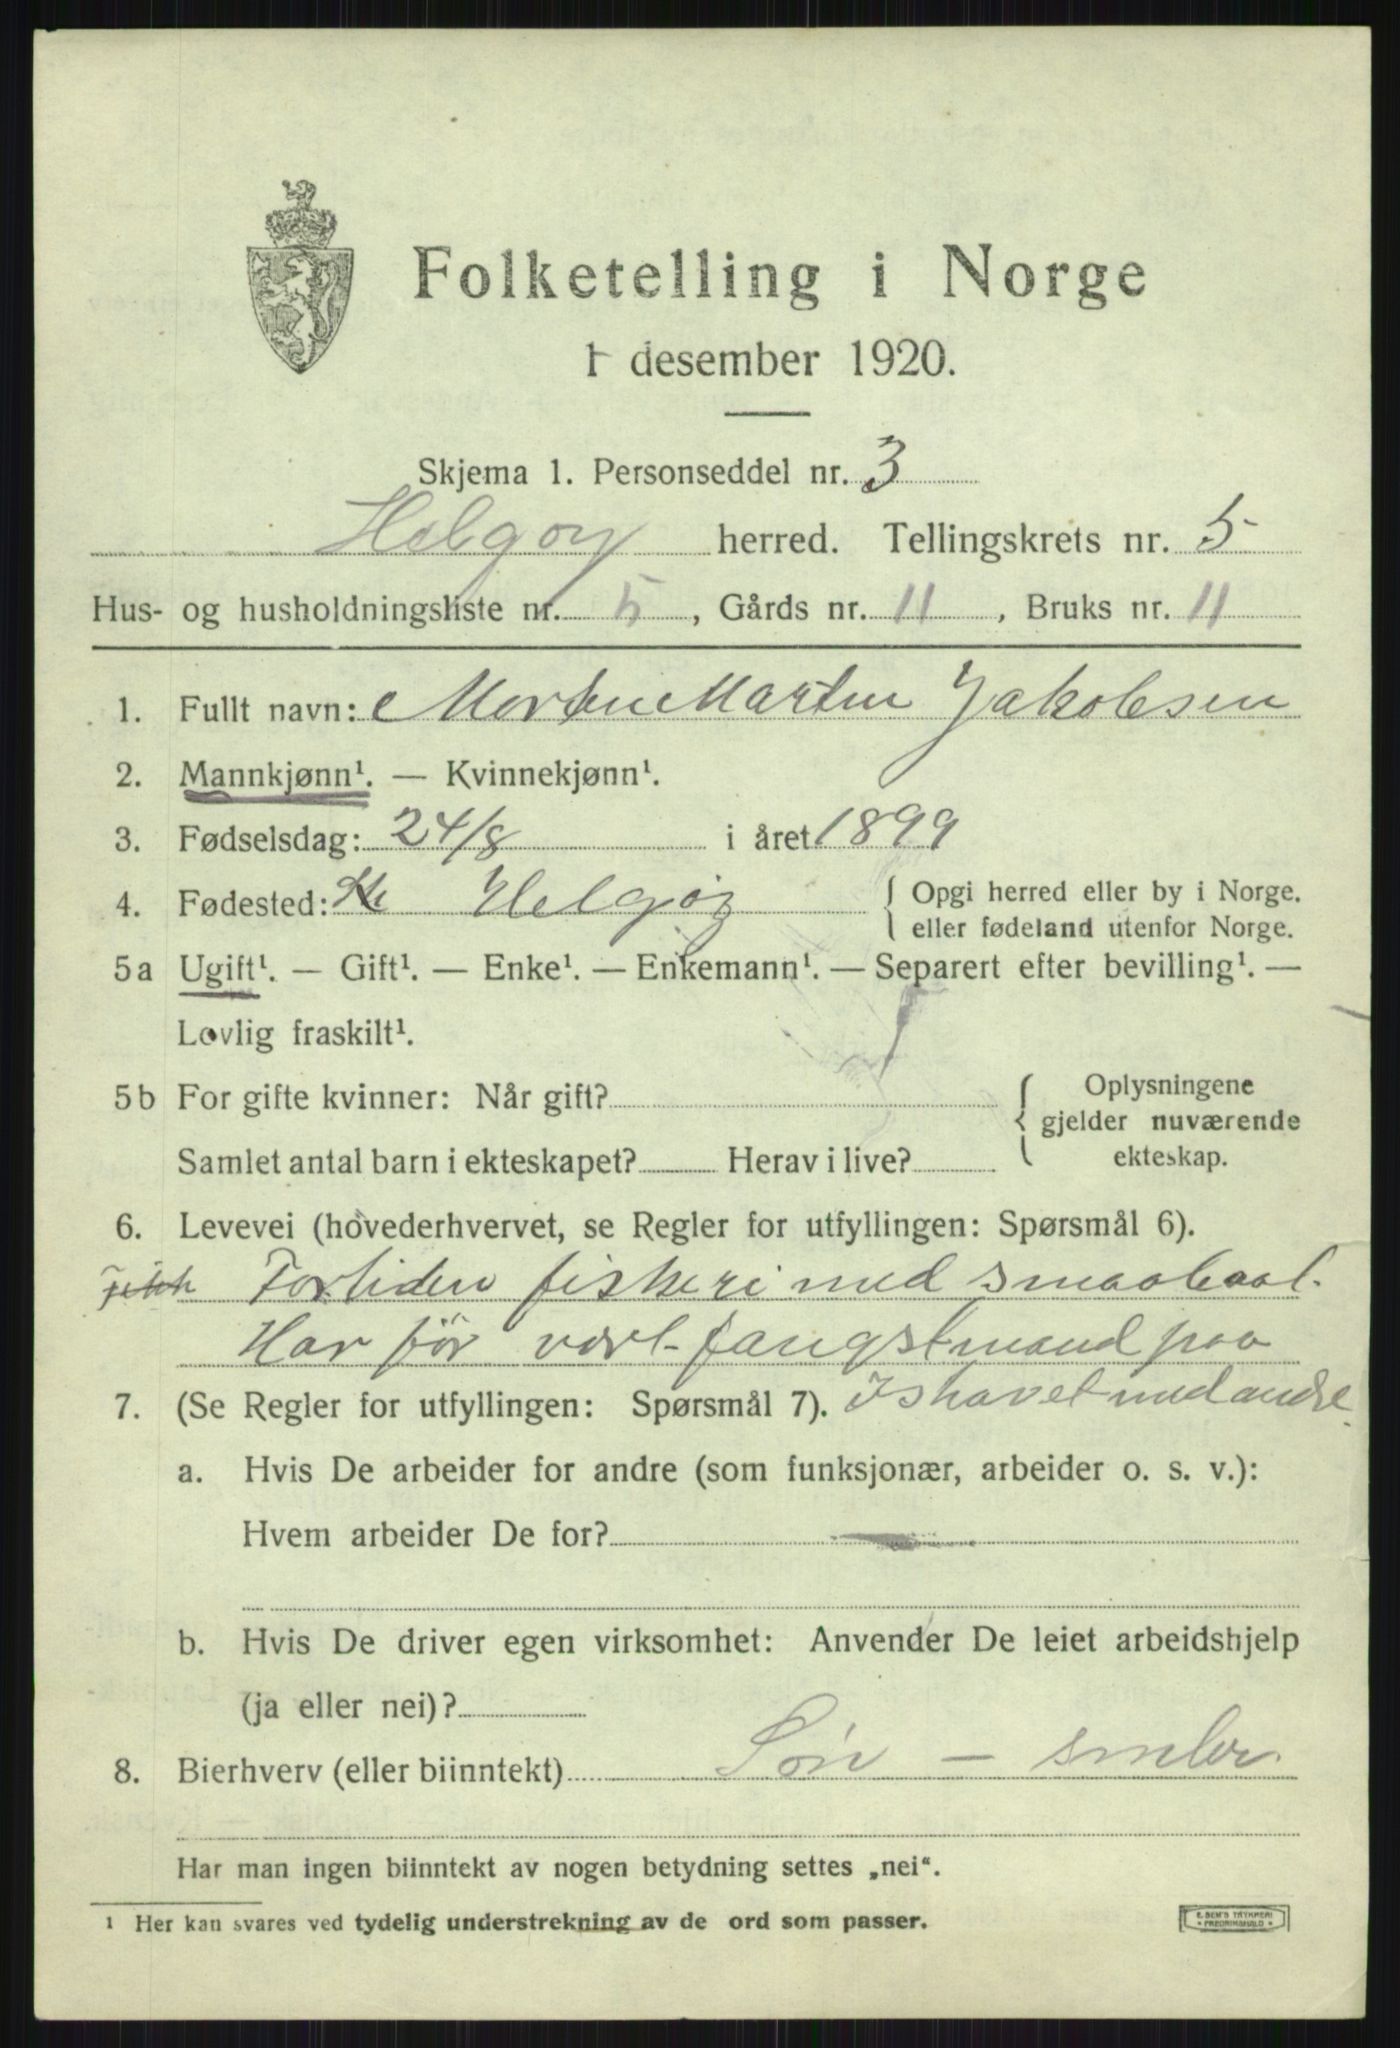 Folketelling i Norge
1 desember 1920.
Skjema 1. Personseddel nr. 3
Helgøy herred. Tellingskrets nr. 5
Hus- og husholdningsliste nr. 5, Gårds nr. 11, Bruks nr. 11
1. Fullt navn: Morten Martin Jakobsen
2. Mannkjønn¹. — Kvinnekjønn¹.
3. Fødselsdag: 24/8 i året 1899
4. Fødested: Helgøy { Opgi herred eller by i Norge.
eller fødeland utenfor Norge.
5a Ugift¹. — Gift¹. — Enke¹. — Enkemann¹. — Separert efter bevilling¹. —
Lovlig fraskilt¹.
5b For gifte kvinner: Når gift? { Oplysningene
gjelder nuværende
Samlet antal barn i ekteskapet? Herav i live? ekteskap.
6. Levevei (hovederhvervet, se Regler for utfyllingen: Spørsmål 6).
Fortiden fiskeri med smaabaat.
Har før vært fangstmand paa
7. (Se Regler for utfyllingen: Spørsmål 7). Ishavet med andre.
a. Hvis De arbeider for andre (som funksjonær, arbeider o. s. v.):
Hvem arbeider De for?
b. Hvis De driver egen virksomhet: Anvender De leiet arbeidshjelp
(ja eller nei)?
8. Bierhverv (eller biinntekt) Søn —
Har man ingen biinntekt av nogen betydning settes „nei“.
¹ Her kan svares ved tydelig understrekning av de ord som passer.
E. SEM'S TRYKKERI
* FREDRIKSHALD *